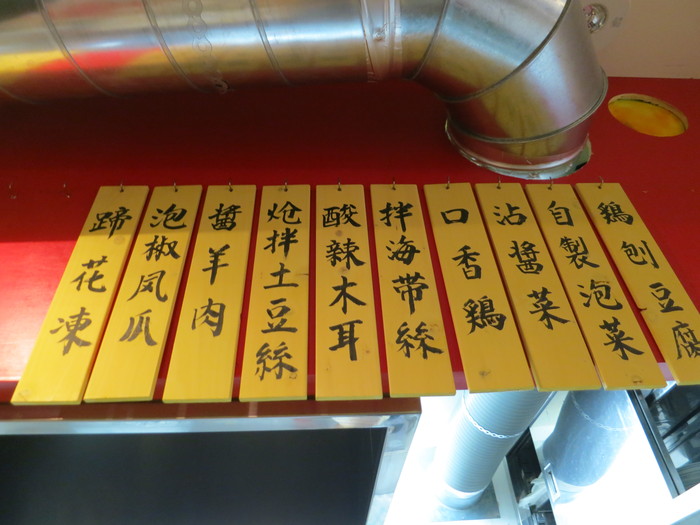 蹄花凍
泡椒凤爪
醬羊肉
炝拌土豆絲
酸辣木耳
拌海带絲
口香鶏
沾醬菜
自製泡菜
鶏刨豆腐